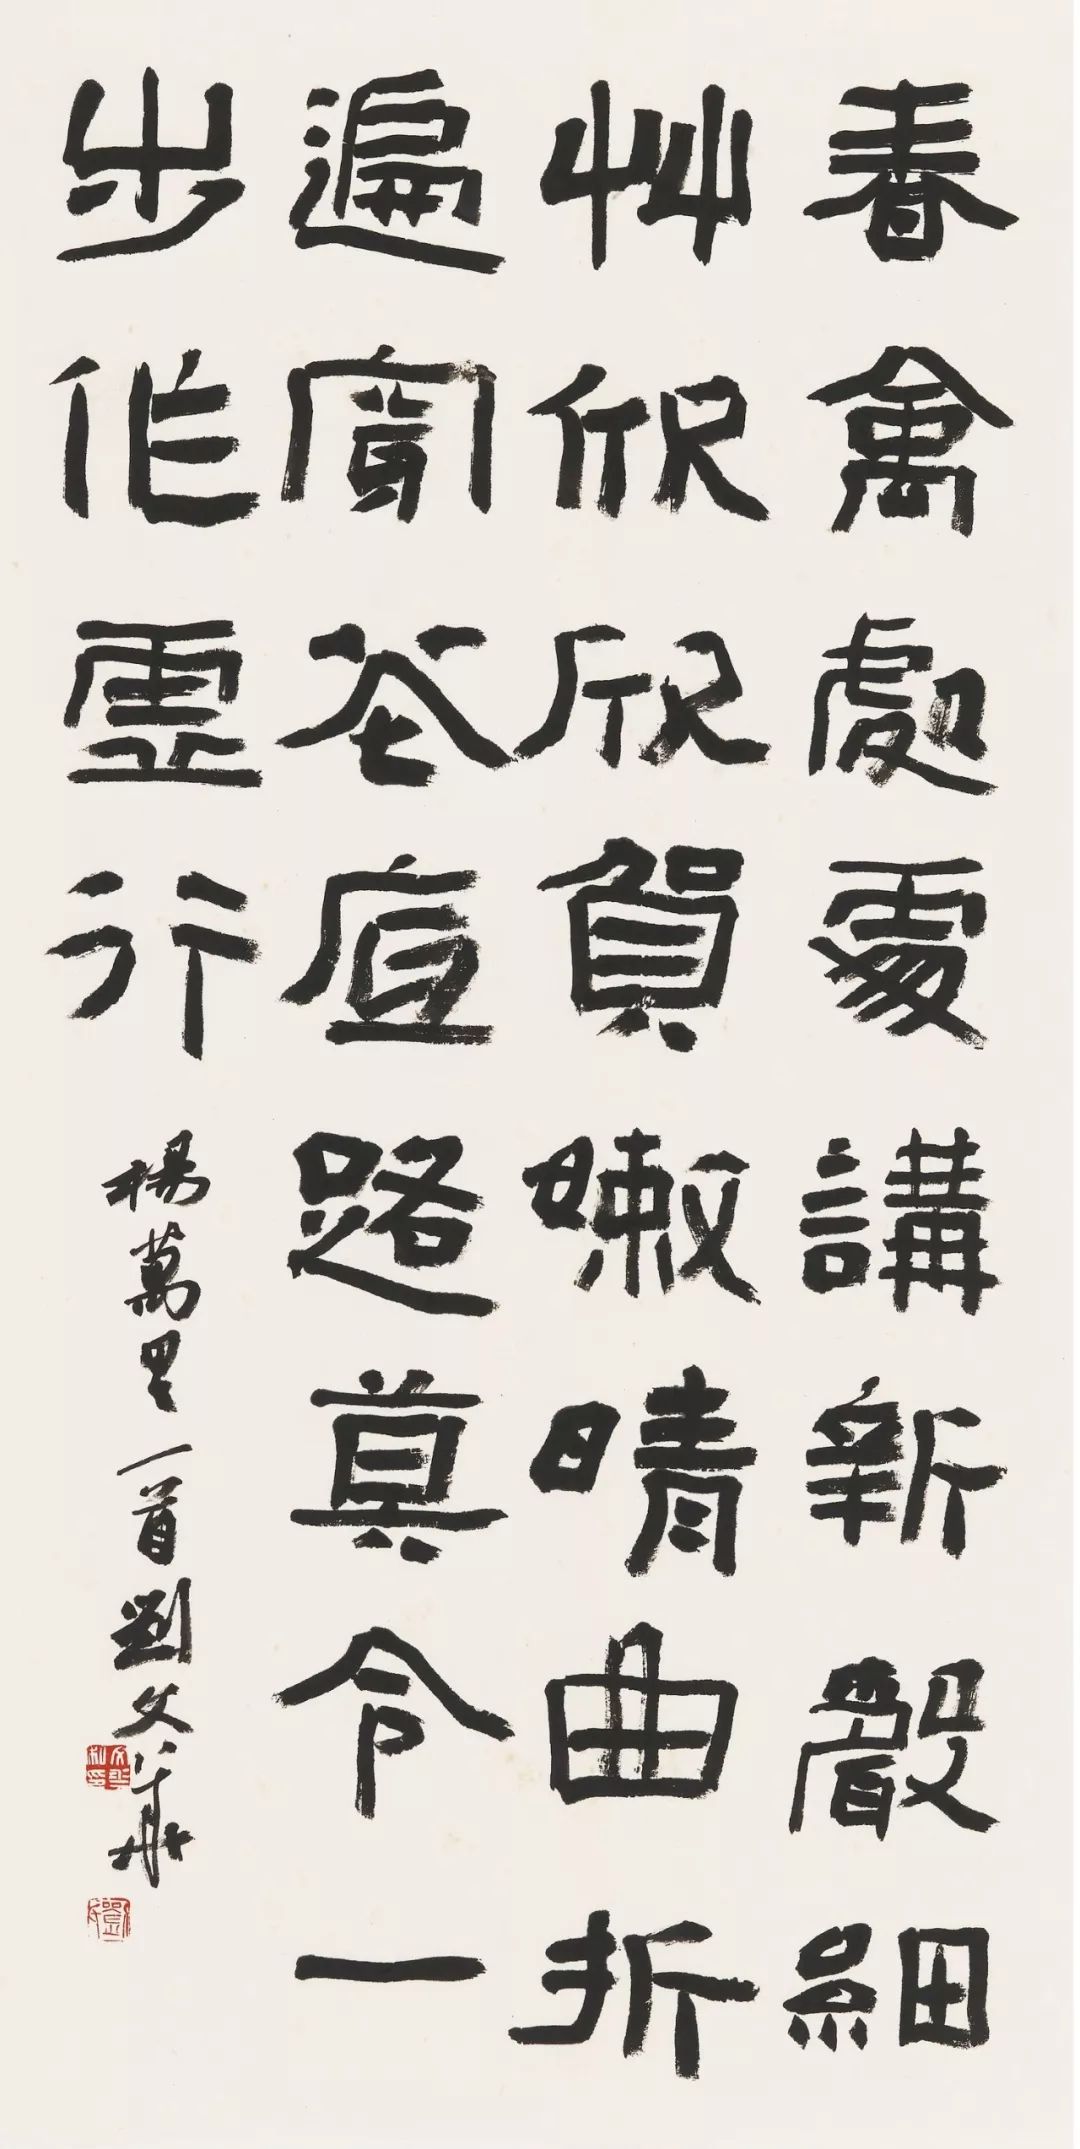 春禽處處講新聲細
艸欣欣賀嫩晴曲折
遍穿花底路莫令一
步作虛行
楊萬里一首劉文華